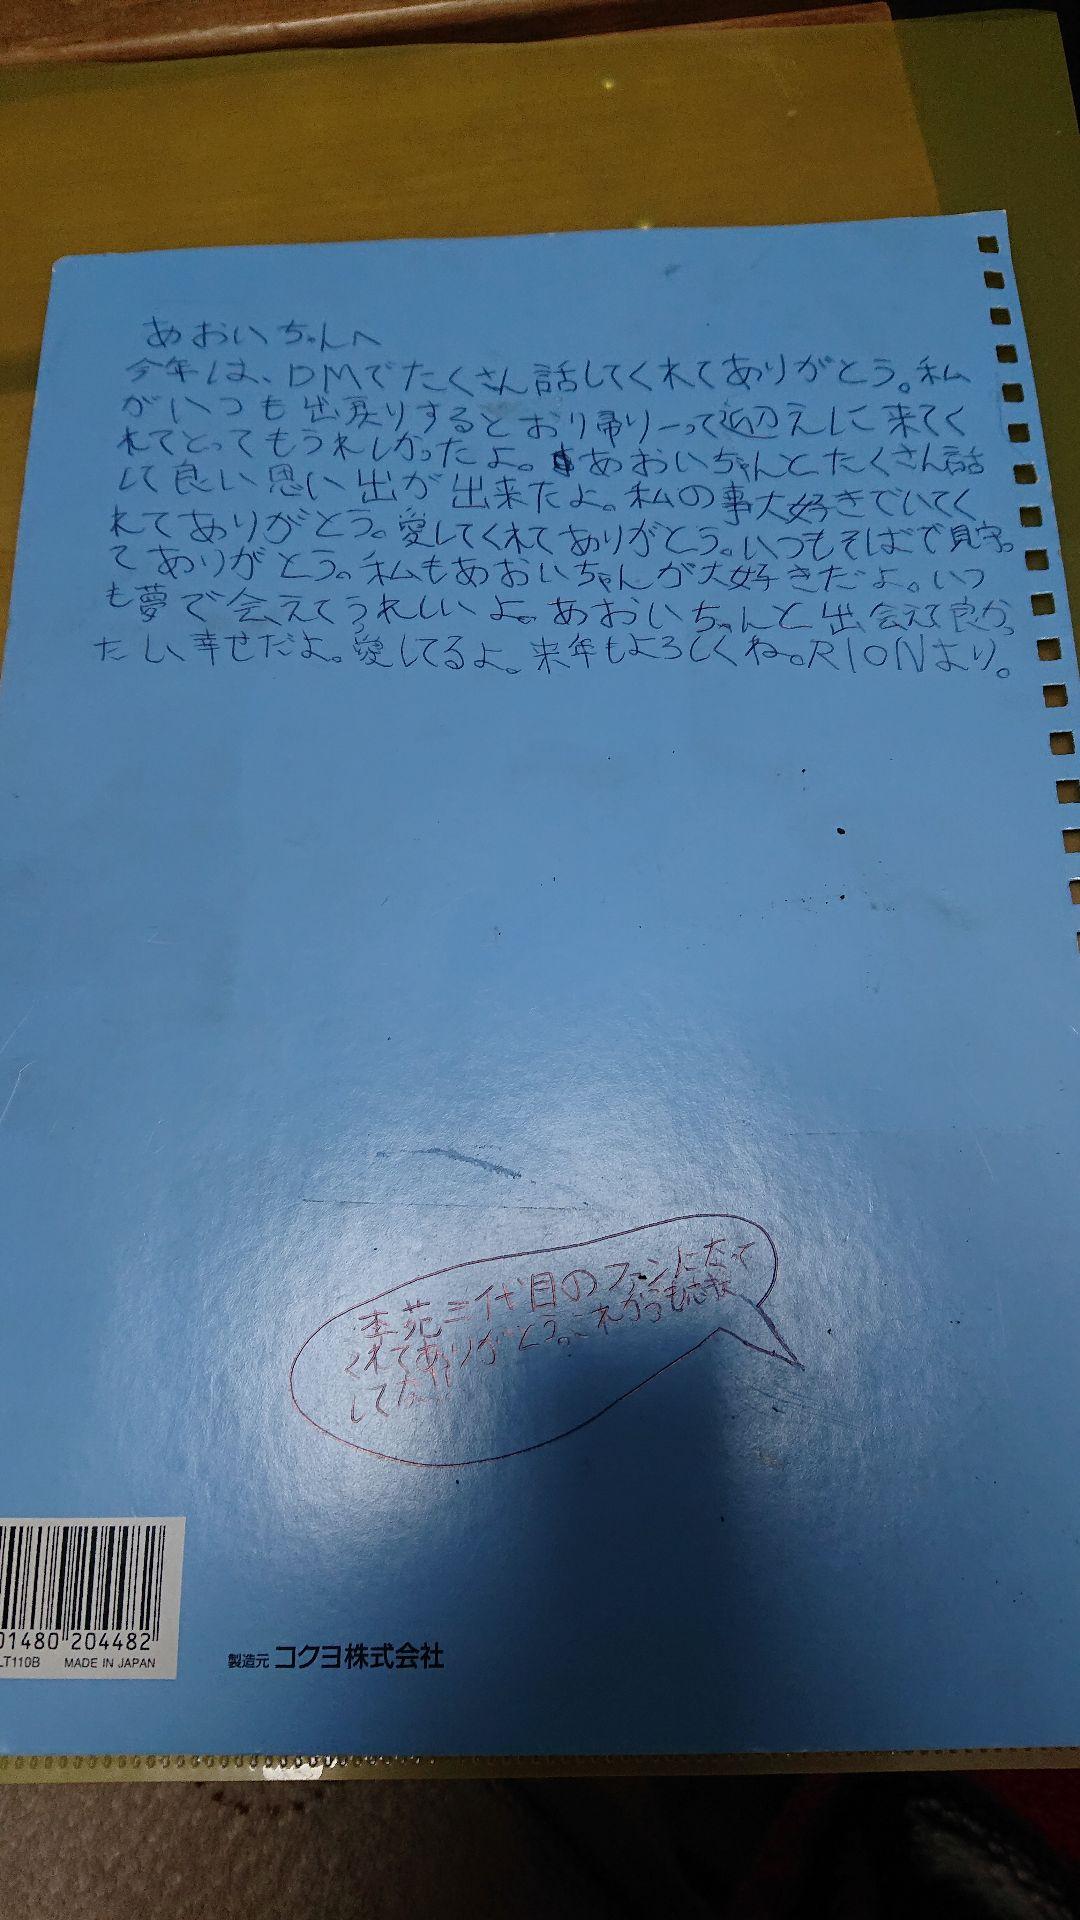 あおいちゃんへ
今年は、DMでたくさん話してくれてありがとう。私
がいつも出戻りするとおり帰りーって迎えしに来てく
れてとってもうれしかったよ。あおいちゃんとたくさん話
して良い思い出が出来たよ。私の事大好きでいてく
れてありがとう。愛してくれてありがとう。いつもそばで見守っ
てありがとう。私もあおいちゃんが大好きだよ。いつ
も夢で会えてうれしいよ。あおいちゃんと出会えて良かっ
たし、幸せだよ。愛してるよ。来年もよろしくね。RIONより。
李苑三代目のファンになって
くれてありがとう。これからも応援
してね
01480 204482
LT110B MADE IN JAPAN
製造元 コクヨ株式会社